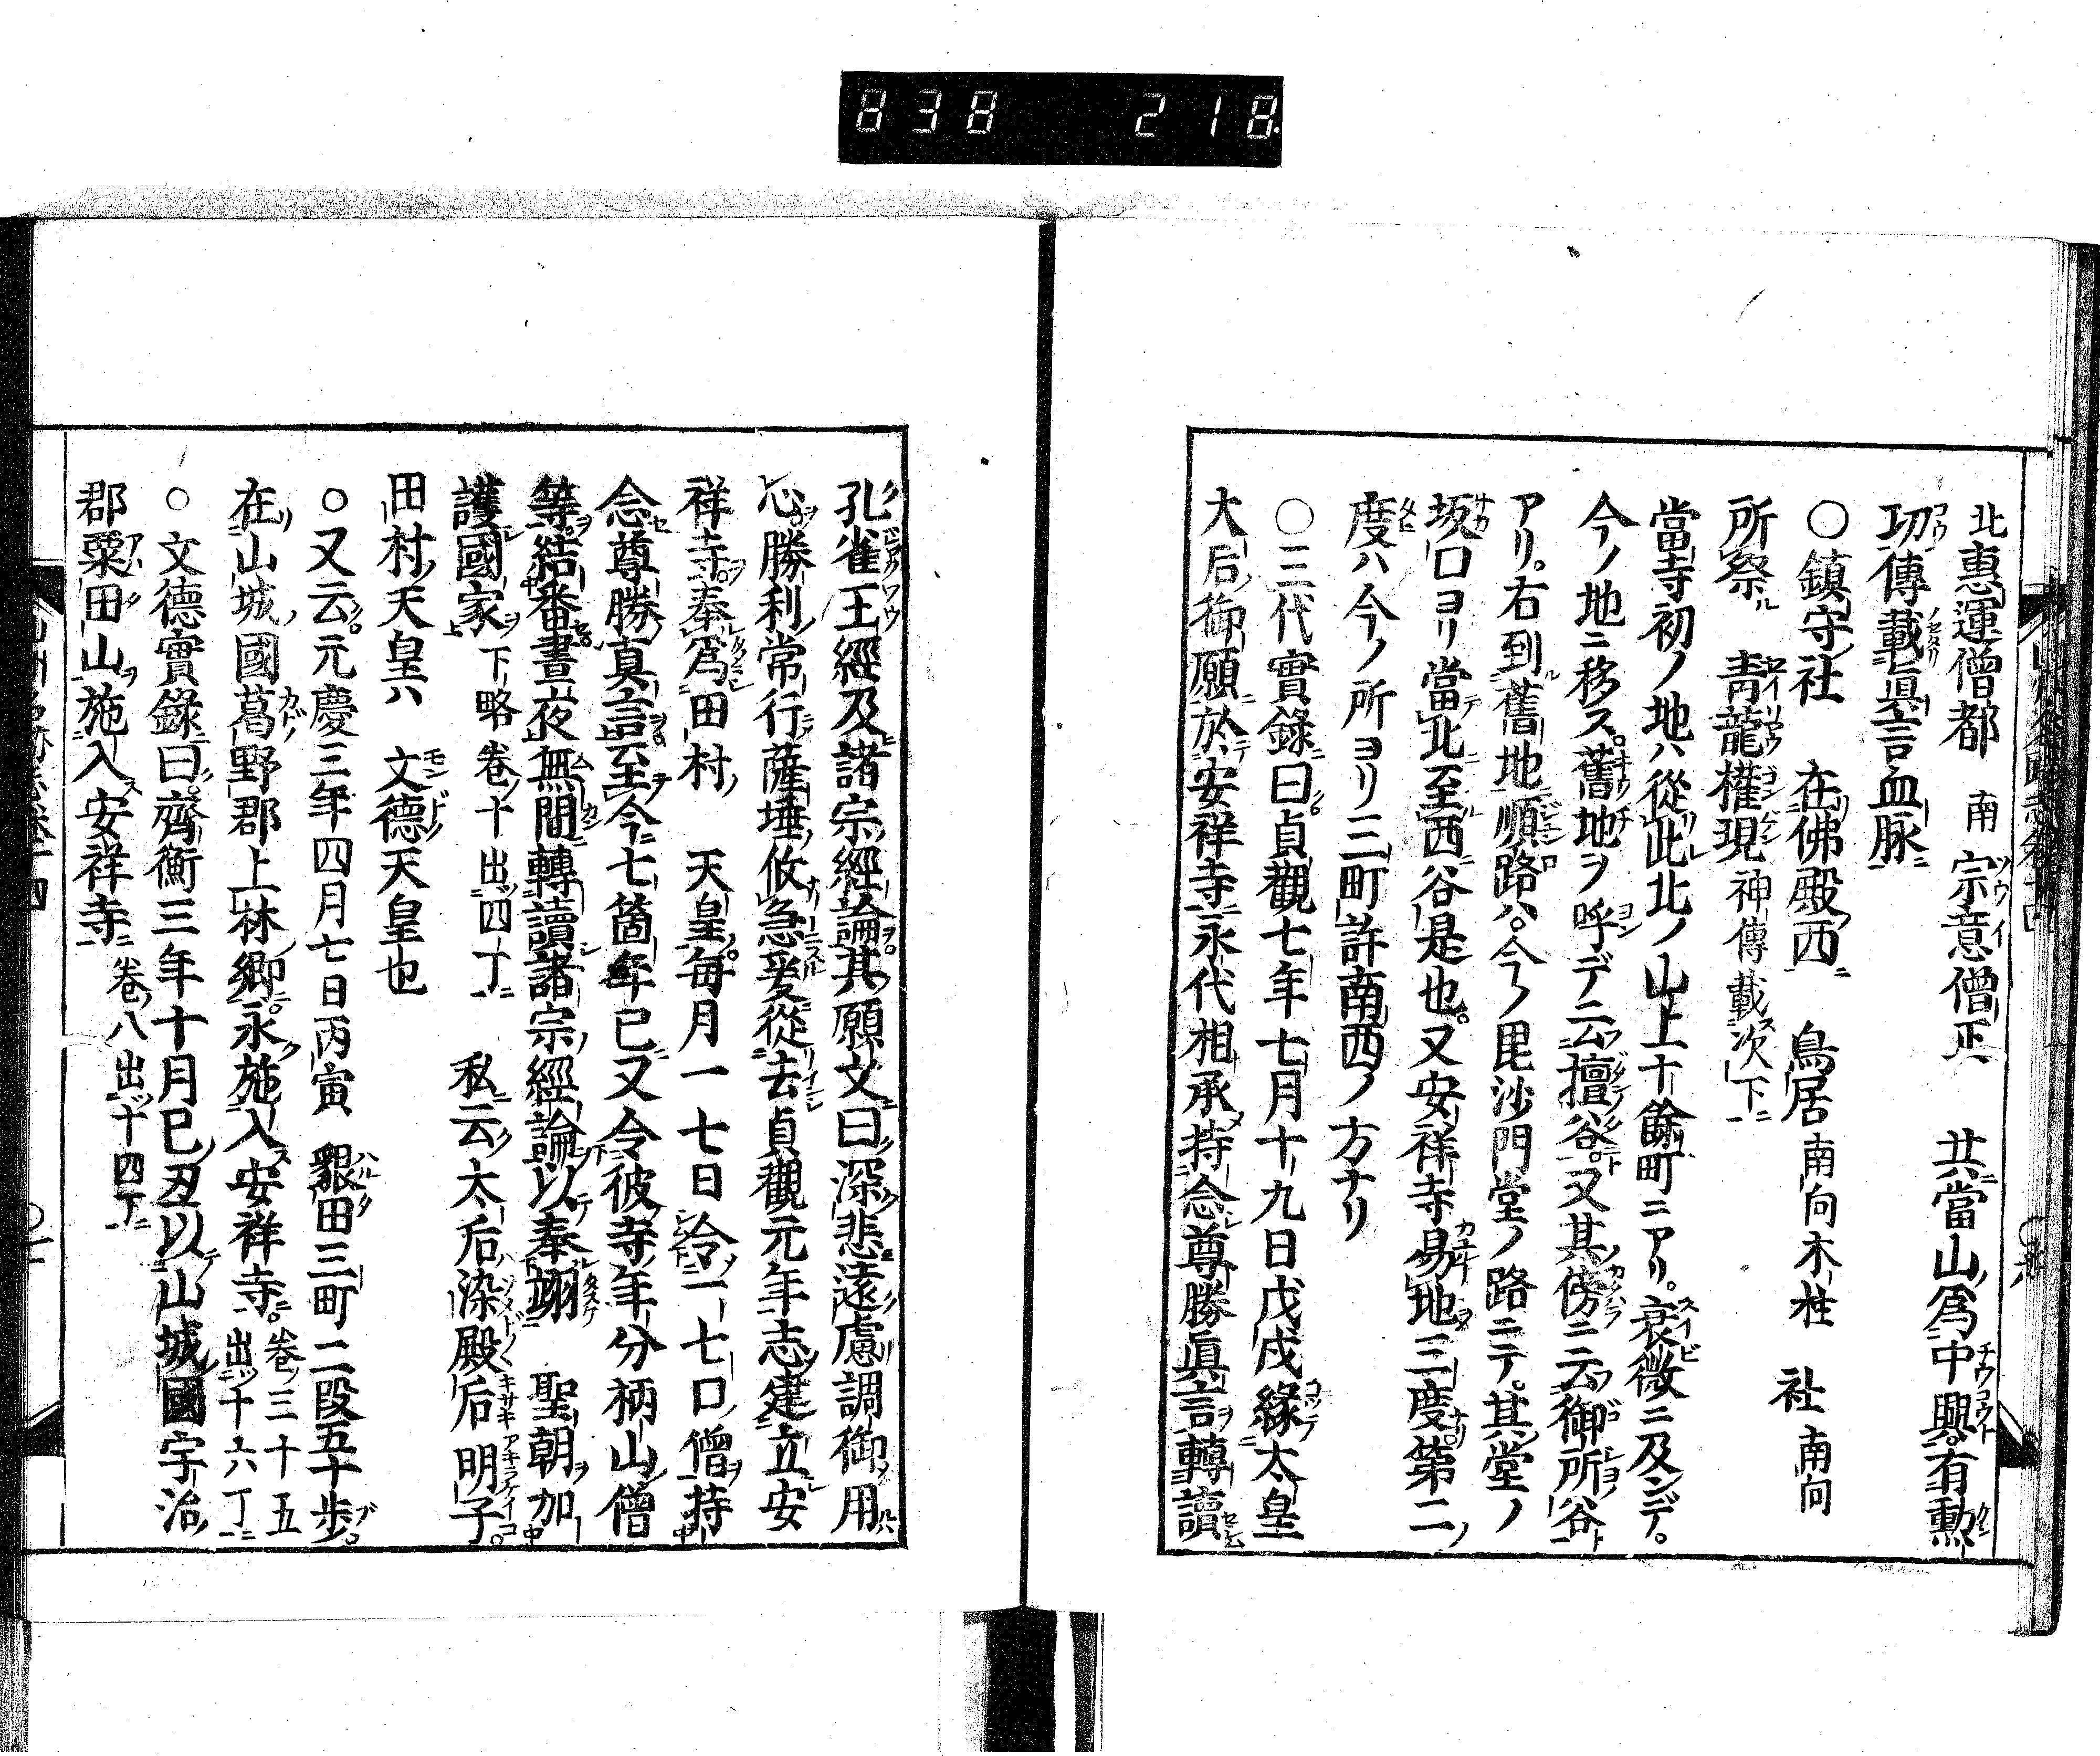 838 218
北惠運僧都 南宗意僧正 共當山爲中興有勲
功傳載眞言血脉
○鎮守社 在佛殿西 鳥居南向木柱 社南向
所祭 青龍權現神傳載次下
當寺初ノ地ハ從此北ノ山上十餘町ニアリ。衰微ニ及ンデ。
今ノ地ニ移ス。舊地ヲ呼デ云檀谷。又其傍ニ云御所谷
アリ。右到舊地順路ハ。今ノ毘沙門堂ノ路ニテ。其堂ノ
坂口ヨリ當北至西谷是也。又安祥寺易地三度第二
度ハ今ノ所ヨリ三町許南西ノ方ナリ
○三代實錄曰貞觀七年七月十九日戊戌緣太皇
大后御願於安祥寺永代相承持念尊勝眞言轉讀
孔雀王經及諸宗經論其願文曰深悲遠慮調御用
心勝利常行薩埵攸急爰從去貞觀元年志建立安
祥寺奉爲田村 天皇每月一七日令一七口僧持
念尊勝真言至今七箇年已又令彼寺年分柄山僧
等結番晝夜無間轉讀諸宗經論以奉翊 聖朝加
護國家 下略卷十出四丁 私云太后染殿后明子
田村天皇ハ 文德天皇也
○又云元慶三年四月七日丙寅 墾田三町二段五十步
在山城國葛野郡上林鄉永施入安祥寺。卷三十五出十六丁
○文德實錄曰齊衡三年十月巳丑以山城國宇治
郡粟田山施入安祥寺 卷八出十四丁